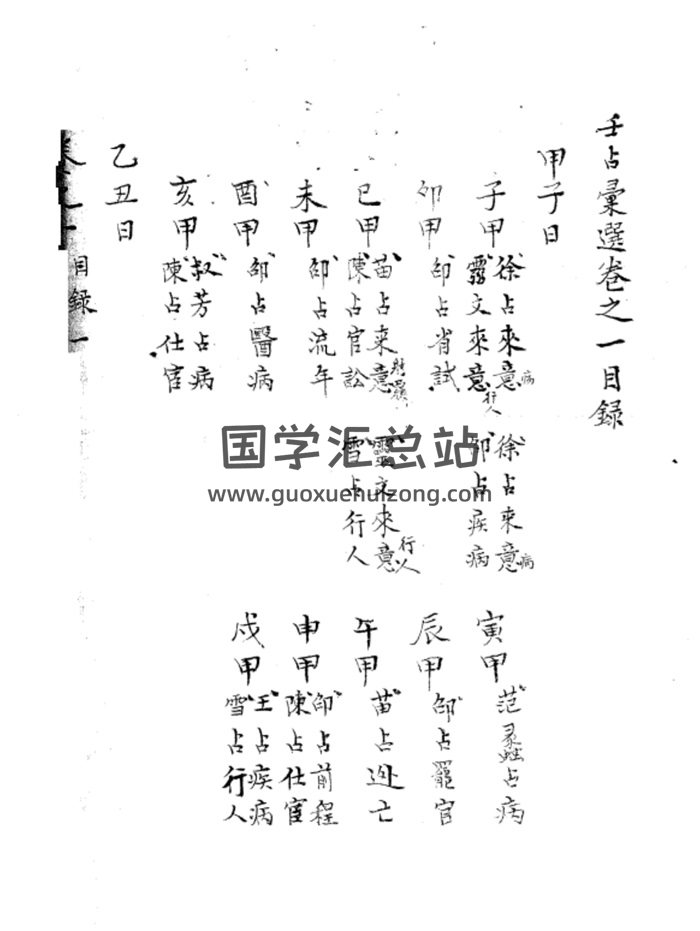 壬占彙選卷之一目録
甲子日
子甲 徐占來意病 徐占來意病
霛文來意行人 邵占疾病
寅甲 范蠡占病
卯甲 邵占省試
辰甲 邵占罷官
巳甲 苗占来意 靈文來意行人
陳占官訟 雪占行人
午甲 苗占逃亡
未甲 邵占流年
申甲 邵占前程
陳占仕宦
酉甲 邵占醫病
戌甲 王占疾病
雪占行人
亥甲 叔芳占病
陳占仕宦
乙丑日
目録一
国学汇总站
www.guoxuehuizong.com